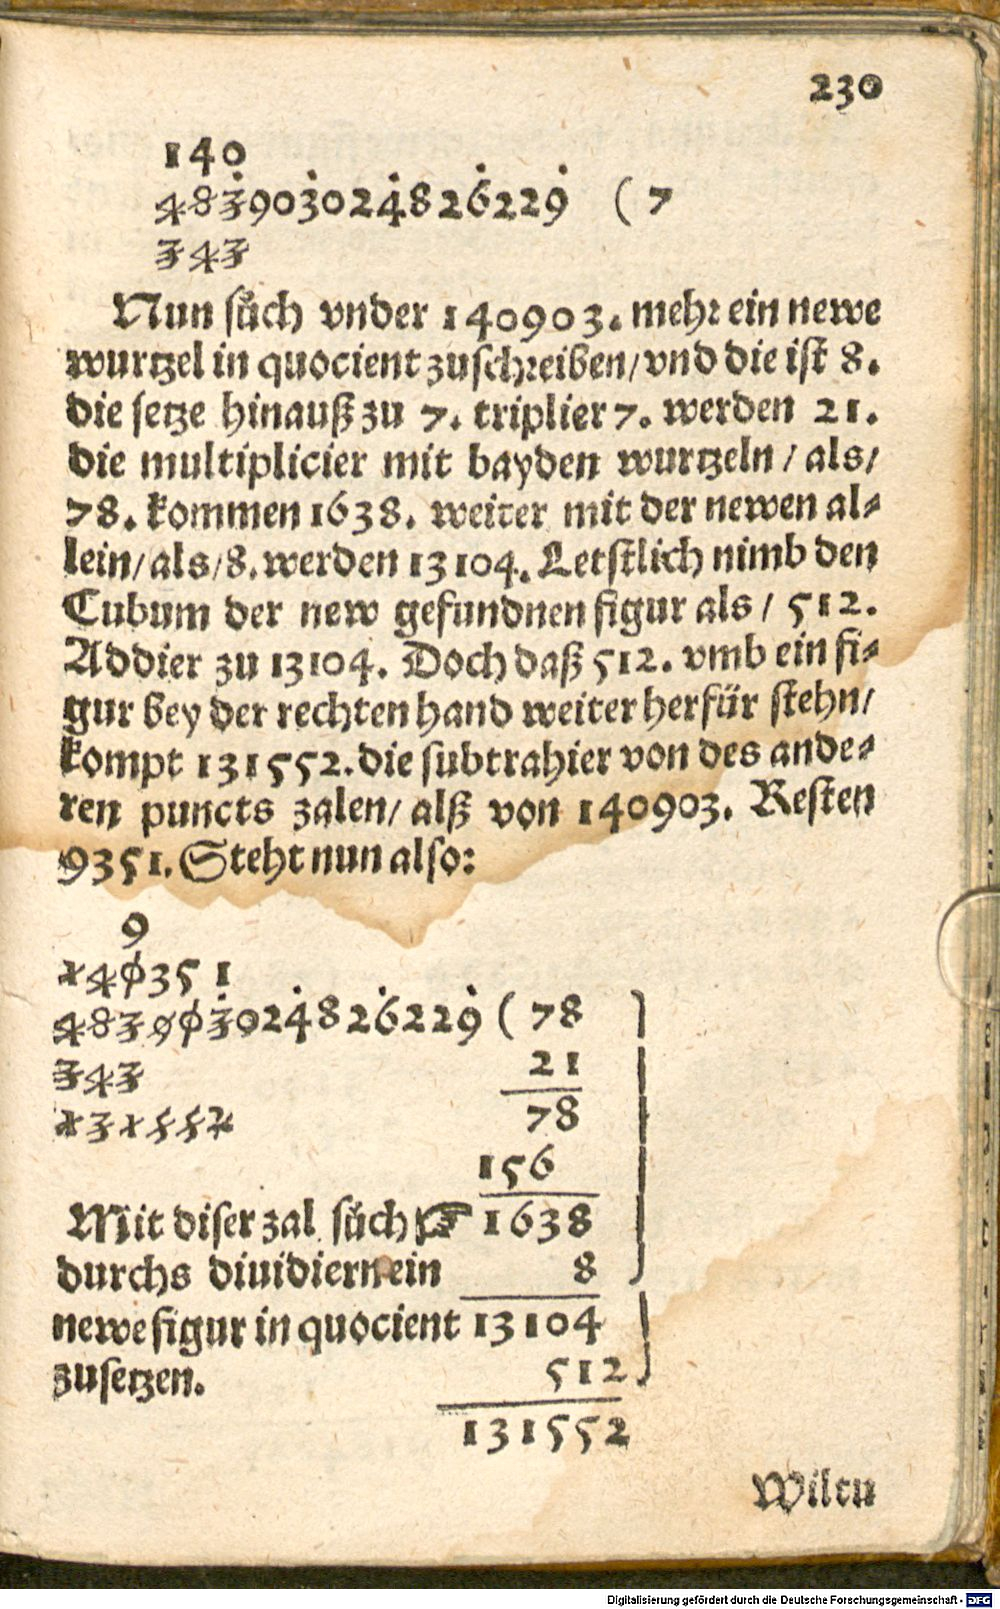 230
140
483903024826229 ( 7
343
Nun sůch vnder 140903. mehr ein newe
wurtzel in quocient zuschreiben/vnd die ist 8.
die setze hinauß zu 7. triplier 7. werden 21.
die multiplicier mit bayden wurtzeln / als/
78. kommen 1638. weiter mit der newen al-
lein/als/8. werden 13104. Letstlich nimb den
Cubum der new gefundnen figur als / 512.
Addier zu 13104. Doch daß 512. vmb ein fi-
gur bey der rechten hand weiter herfür stehn/
kompt 131552. die subtrahier von des ande-
ren puncts zalen/ alß von 140903. Resten
9351. Steht nun also:
9
140351
483903024826229 ( 78
343 21
131552 78
156
Mit diser zal sůch ☞ 1638
durchs diuidiern ein 8
newe figur in quocient 13104
zusetzen. 512
131552
Wiltu
Digitalisierung gefördert durch die Deutsche Forschungsgemeinschaft - DFG